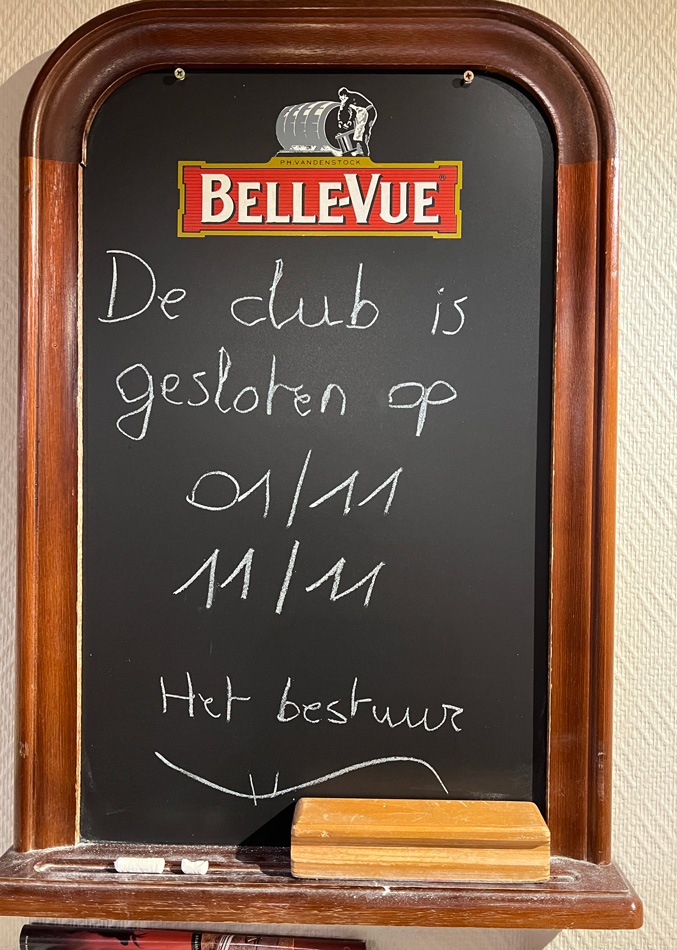 PH.VANDENSTOCK
BELLE-VUE®
De club is
gesloten op
01/11
11/11
Het bestuur